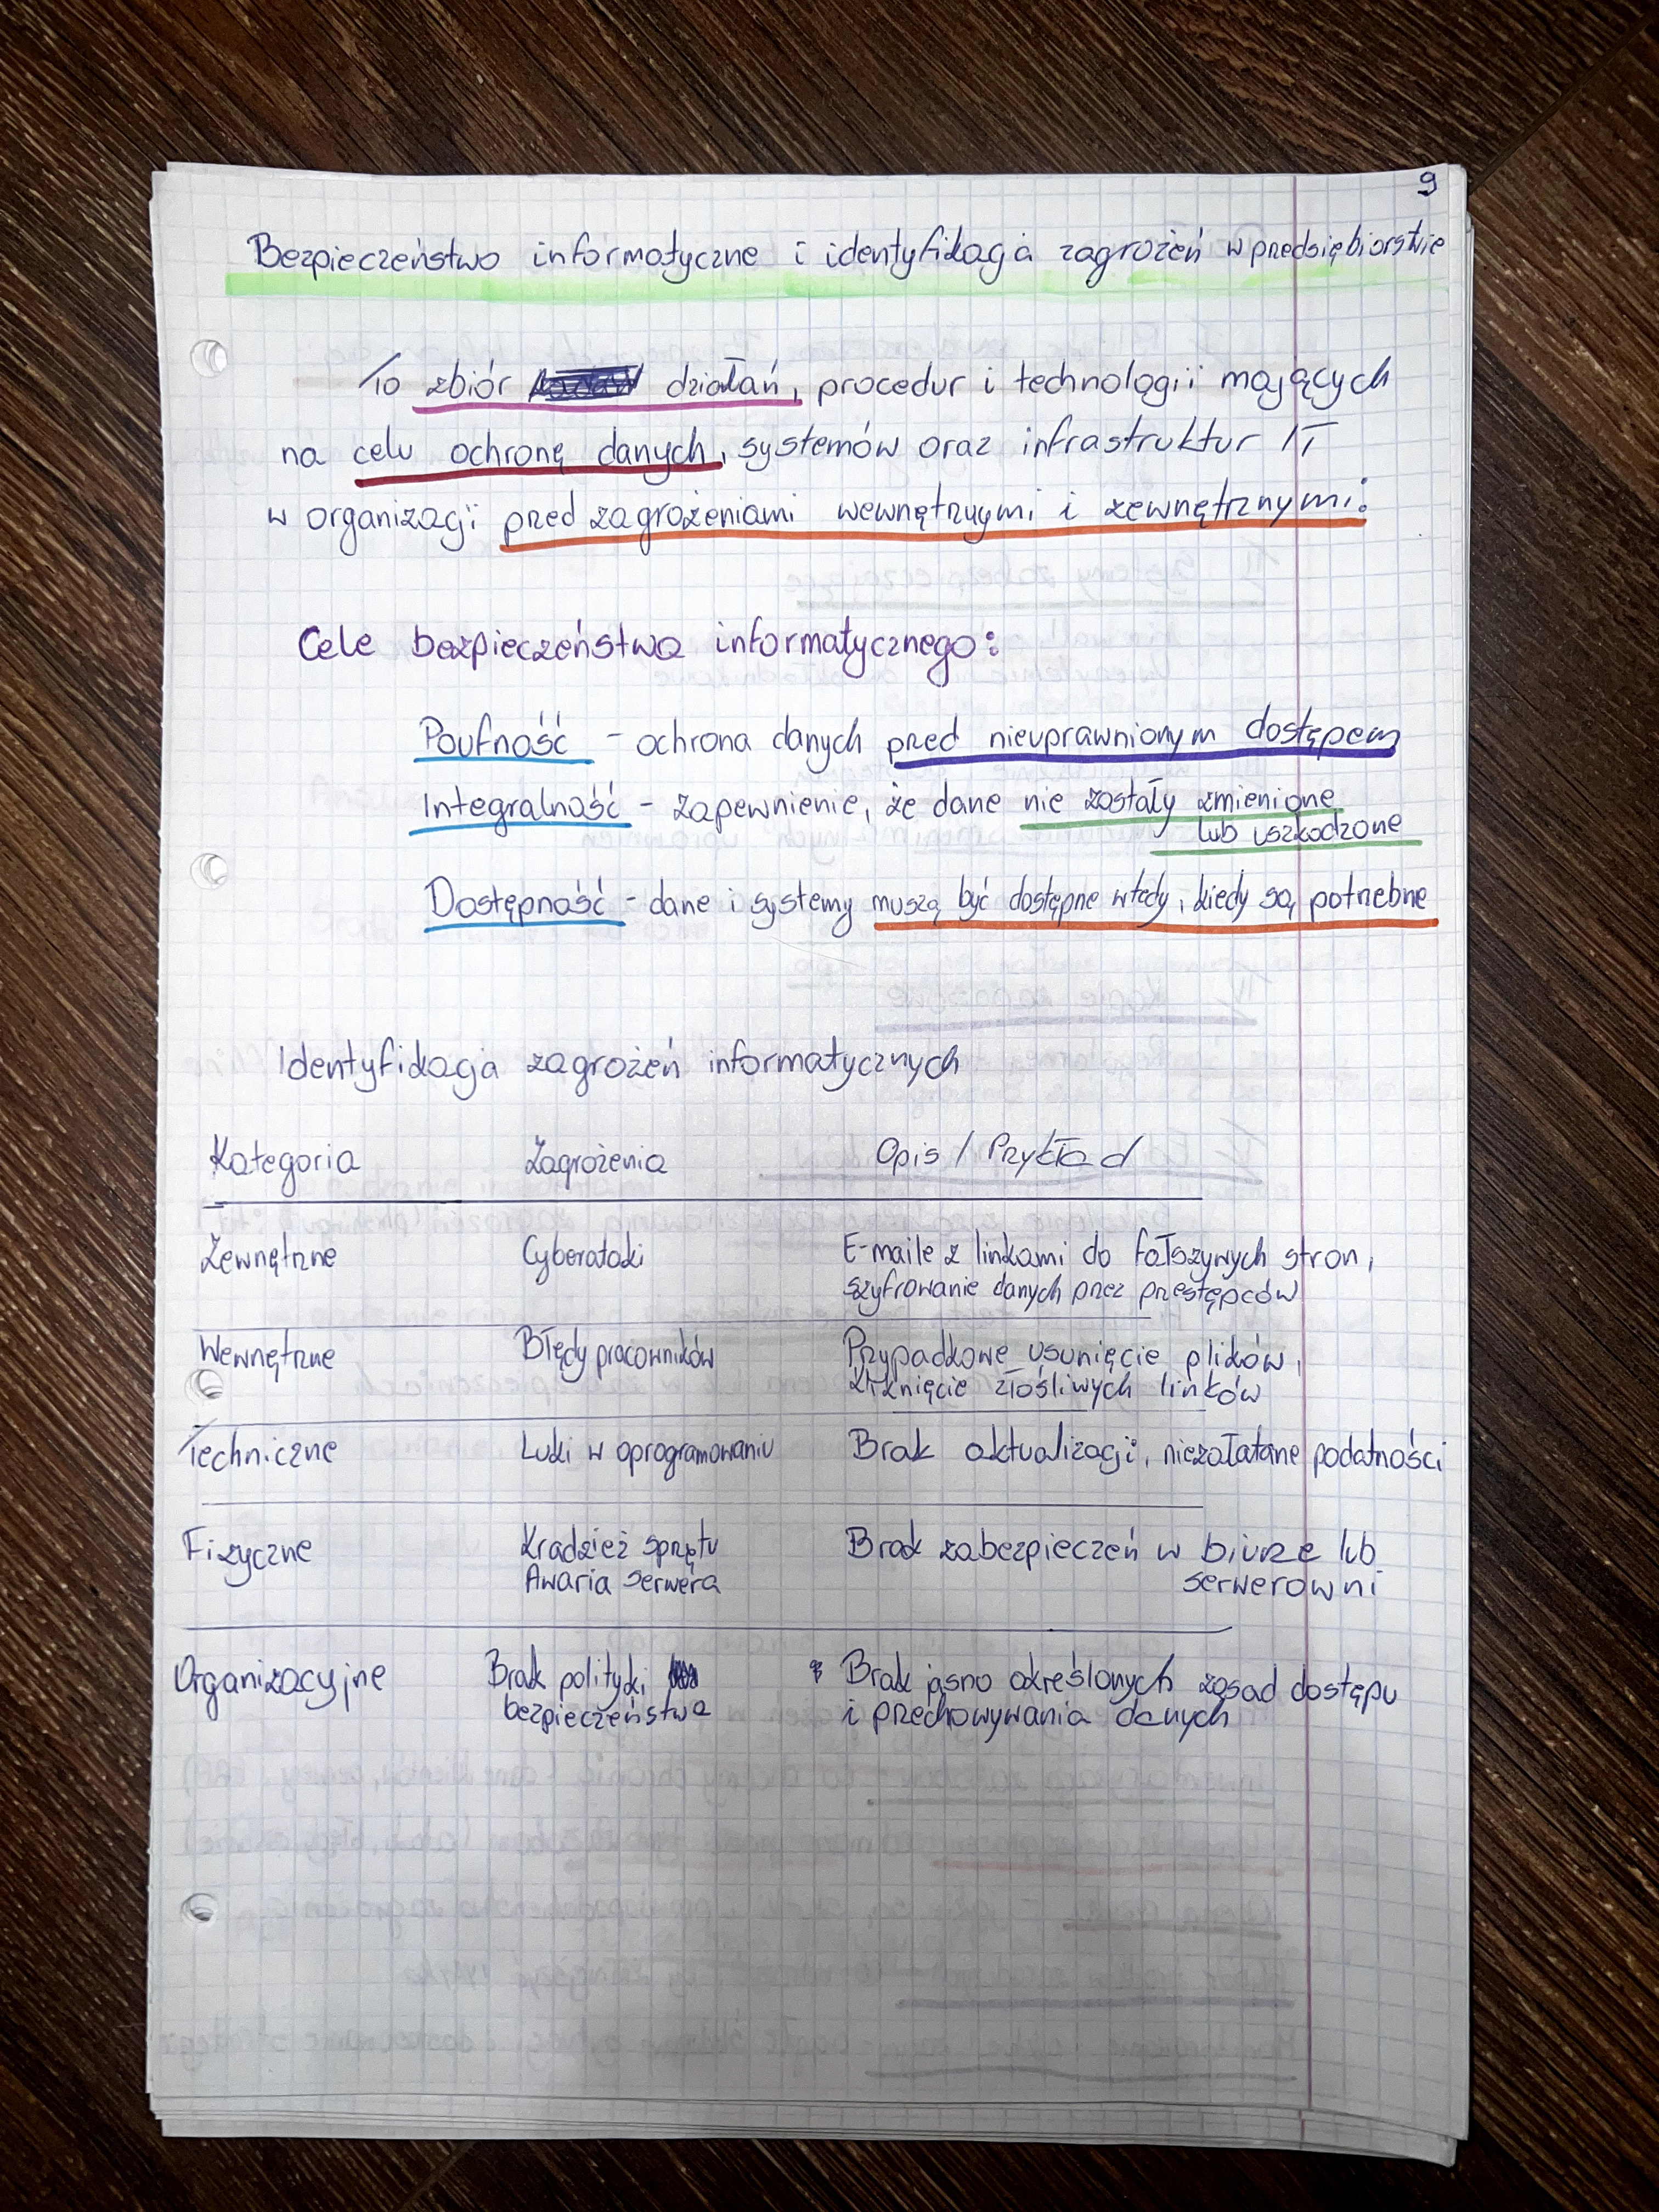 9
Bezpieczeństwo informatyczne i identyfikacja zagrożeń w przedsiębiorstwie
To zbiór działań, procedur i technologii mających
na celu ochronę danych, systemów oraz infrastruktur IT
w organizacji przed zagrożeniami wewnętrznymi i zewnętrznymi.
Cele bezpieczeństwa informatycznego:
Poufność - ochrona danych przed nieuprawnionym dostępem
Integralność - zapewnienie, że dane nie zostały zmienione
lub uszkodzone
Dostępność - dane i systemy muszą być dostępne wtedy, kiedy są potrzebne
Identyfikacja zagrożeń informatycznych
Kategoria Zagrożenia Opis / Przykład
Zewnętrzne Cyberataki E-maile z linkami do fałszywych stron,
szyfrowanie danych przez przestępców
Wewnętrzne Błędy pracowników Przypadkowe usunięcie plików,
kliknięcie złośliwych linków
Techniczne Luki w oprogramowaniu Brak aktualizacji, niezałatane podatności
Fizyczne Kradzież sprzętu Brak zabezpieczeń w biurze lub
Awaria serwera serwerowni
Organizacyjne Brak polityki Brak jasno określonych zasad dostępu
bezpieczeństwa i przechowywania danych